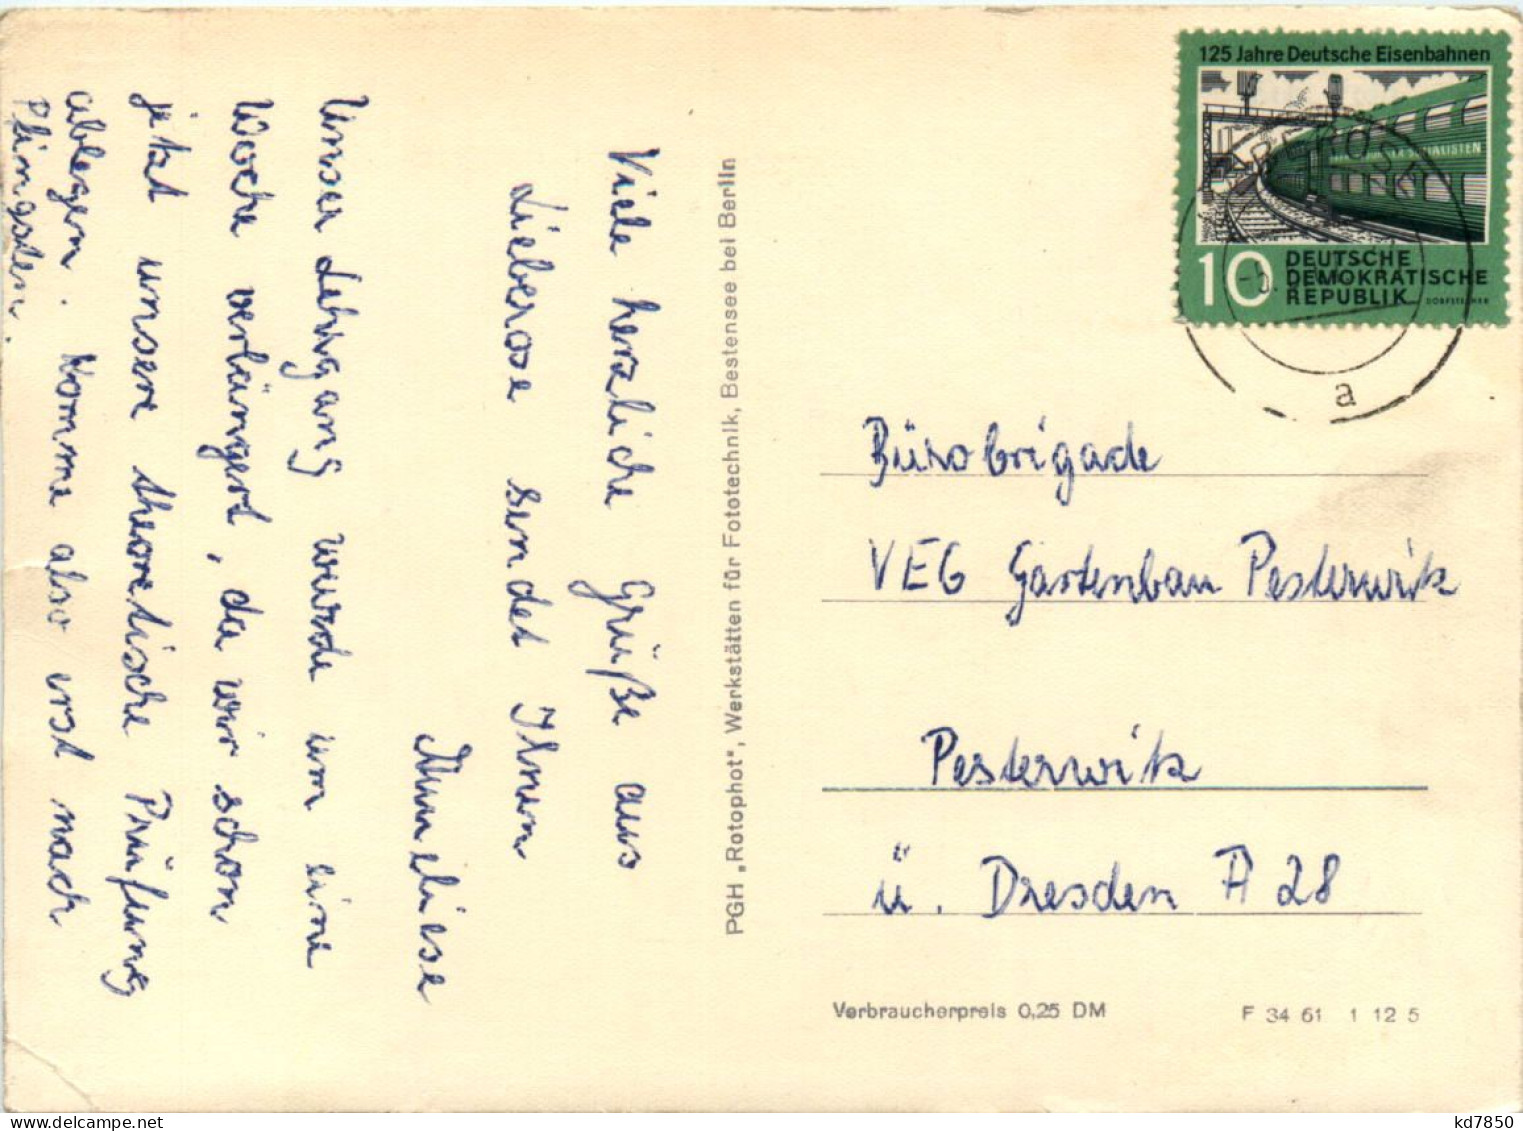 Viele herzliche Grüße aus
Lieberose sendet Ihnen
Anneliese
Unser Lehrgang wurde um eine
Woche verlängert, da wir schon
jetzt unsere theoretische Prüfung
ablegen. Komme also erst nach
Pfingsten.
PGH „Rotophot", Werkstätten für Fototechnik, Bestensee bei Berlin
125 Jahre Deutsche Eisenbahnen
10 DEUTSCHE
DEMOKRATISCHE
REPUBLIK
a
Bürobrigade
VEG Gartenbau Pesterwitz
Pesterwitz
ü. Dresden A 28
Verbraucherpreis 0,25 DM
F 34 61 1 12 5
kd7850